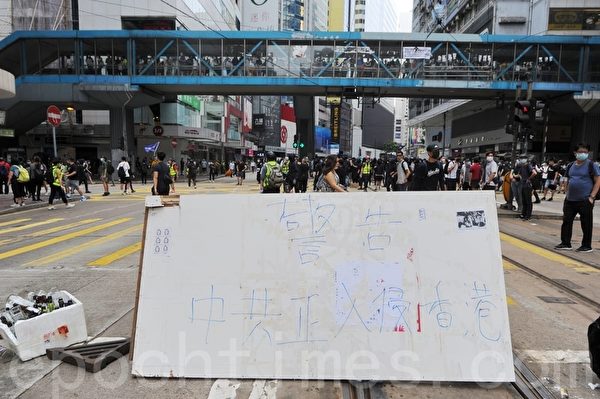 警告
中共正入侵香港
epochtimes.com